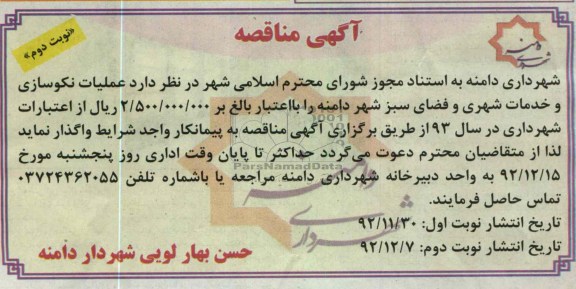 آگهی مناقصه
«نوبت دوم»
شهرداری دامنه به استناد مجوز شورای محترم اسلامی شهر در نظر دارد عملیات نکوسازی
و خدمات شهری و فضای سبز شهر دامنه را بااعتبار بالغ بر ۲/۵۰۰/۰۰۰/۰۰۰ ریال از اعتبارات
شهرداری در سال ۹۳ از طریق برگزاری آگهی مناقصه به پیمانکار واجد شرایط واگذار نماید
لذا از متقاضیان محترم دعوت می‌گردد حداکثر تا پایان وقت اداری روز پنجشنبه مورخ
۹۲/۱۲/۱۵ به واحد دبیرخانه شهرداری دامنه مراجعه یا باشماره تلفن ۰۳۷۲۴۳۶۲۰۵۵
تماس حاصل فرمایند.
تاریخ انتشار نوبت اول: ۹۲/۱۱/۳۰
تاریخ انتشار نوبت دوم: ۹۲/۱۲/۷
حسن بهار لویی شهردار دامنه
ParsNamadData